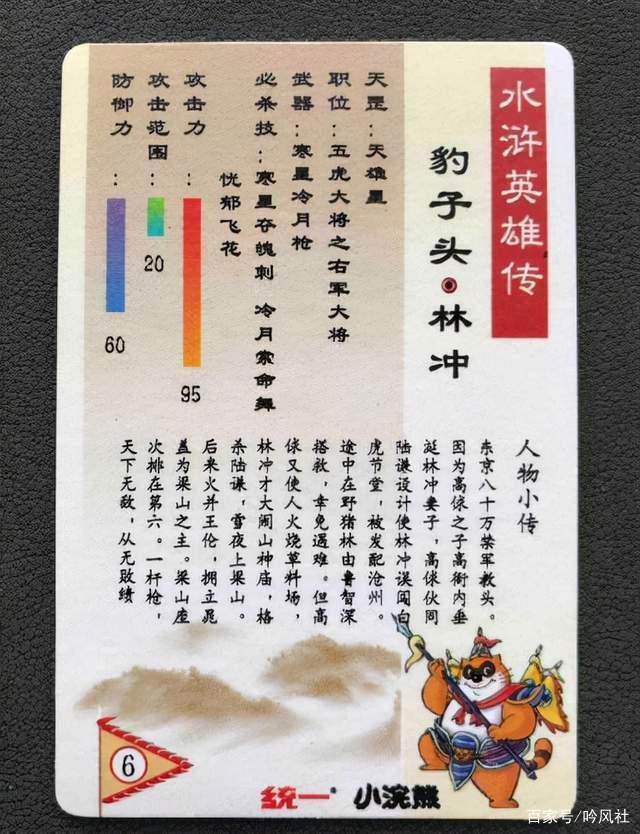 水浒英雄传
豹子头·林冲
天罡：天雄星
职位：五虎大将之右军大将
武器：寒星冷月枪
必杀技：寒星夺魄刺 冷月索命舞
忧郁飞花
攻击力：
95
攻击范围：
20
防御力：
60
人物小传
东京八十万禁军教头。
因为高俅之子高衙内垂
涎林冲妻子，高俅伙同
陆谦设计使林冲误闯白
虎节堂，被发配沧州。
途中在野猪林由鲁智深
搭救，幸免遇难。但高
俅又使人火烧草料场，
林冲才大闹山神庙，格
杀陆谦，雪夜上梁山。
后来火并王伦，拥立晁
盖为梁山之主。梁山座
次排在第六。一杆枪，
天下无敌，从无败绩
6
统一 小浣熊
百家号/吟风社